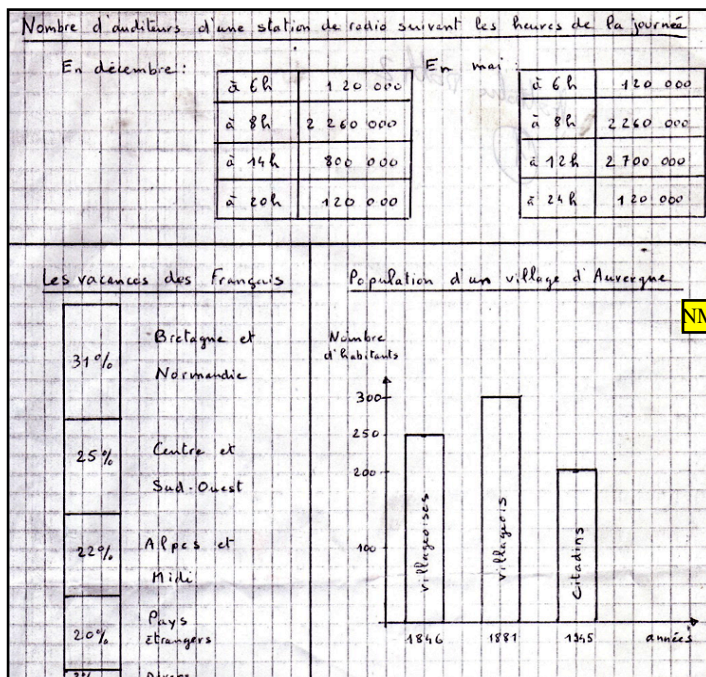 Nombre d'auditeurs d'une station de radio suivant les heures de la journée
En décembre :
à 6h 120 000
à 8h 2 260 000
à 14h 800 000
à 20h 120 000
En mai :
à 6h 120 000
à 8h 2260 000
à 12h 2 700 000
à 24h 120 000
Les vacances des Français
31% Bretagne et
Normandie
25% Centre et
Sud-Ouest
22% Alpes et
Midi
20% Pays
Etrangers
2% Divers
Population d'un village d'Auvergne
Nombre
d'habitants
300
250
200
100
villageoises
villageois
Citadins
1846 1881 1945 années
NM